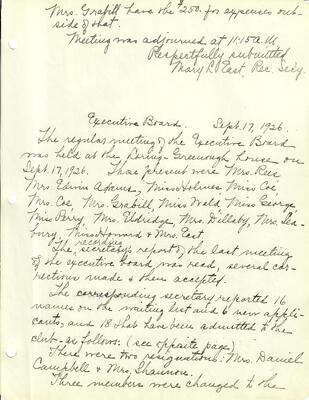 Mrs. Grabill have the $250. for expenses out-
side of that.
Meeting was adjourned at 11:45 A.M.
Respectfully submitted
Mary L. East, Rec. Sec'y.
Executive Board. Sept. 17, 1926.
The regular meeting of the Executive Board
was held at the Loring-Greenough house on
Sept. 17, 1926. Those present were Mrs. Rees
Mrs. Edwin Adams, Miss Holmes, Miss Coe,
Mrs. Coe, Mrs. Grabill, Miss Wald, Miss George,
Miss Perry, Mrs. Eldridge, Mrs. Dillaby, Mrs. Sea-
bury, Miss Howard & Mrs. East.
The recording secretary's report of the last meeting
of the executive board was read, several cor-
rections made & then accepted.
The corresponding secretary reported 16
names on the waiting list and 6 new appli-
cants, and 18 that have been admitted to the
club, as follows: (see opposite page)
There were two resignations: Mrs. Daniel
Campbell & Mrs. Shannon.
Three members were changed to the